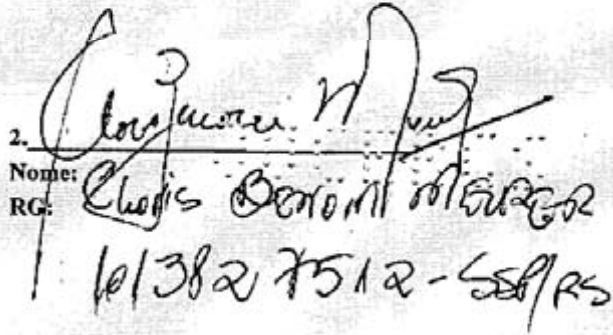 2.
Nome: Clovis Benoni Meurer
RG: 613827512-SSP/RS